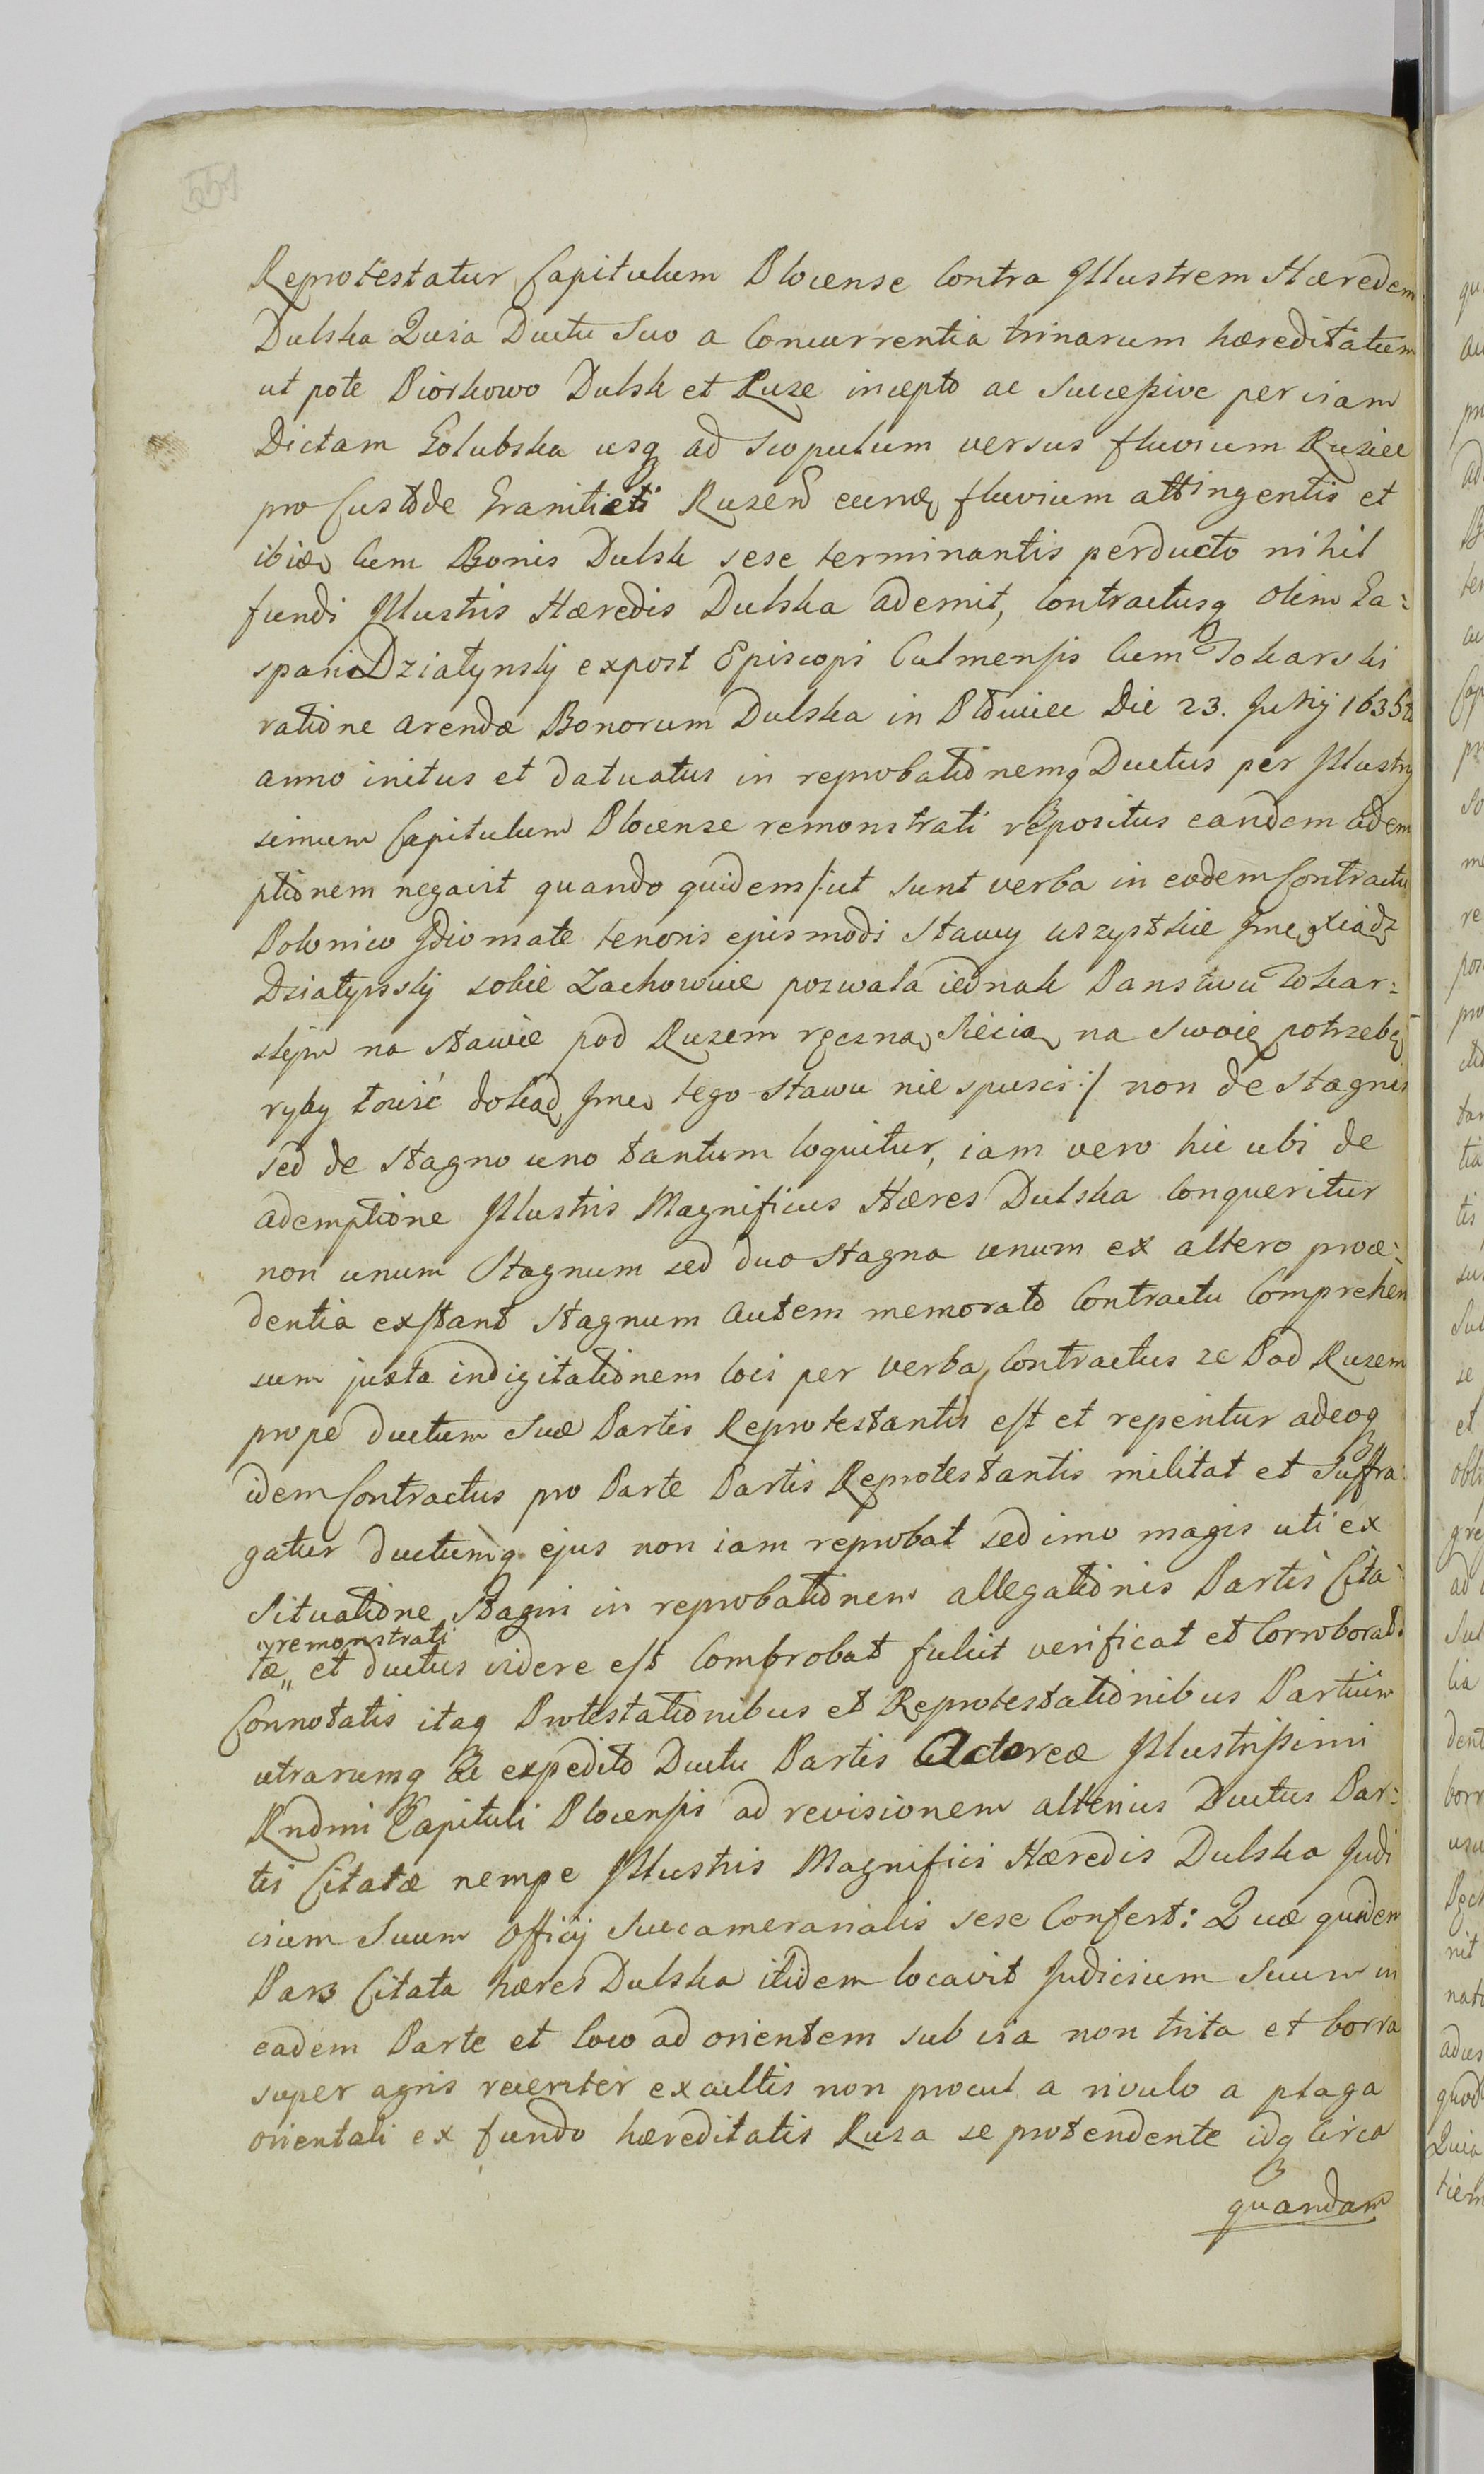 551
Reprotestatur Capitulum Plocense Contra Jllustrem Hæredem
Dulska Quia Ductu Suo a Concurrentia trinarum hæreditatum
ut pote Piorkowo Dulsk et Ruze incepto ac Succeßive per viam
Dictam Golubska usq ad Scopulum versus fluvium Ruziec
pro Custode Graniticti Ruzend eumq fluvium attingentis et
ibiq Cum Bonis Dulsk sese terminantis perducto nihil
fundi Jllustris Hæredis Dulska ademit, Contractusq Olim Ga:
spari Dziatynskj expost Episcopi Culmensis Cum D Tokarski
ratione arendæ Bonorum Dulska in Ptowiec Die 23. Junij 1635to
anno initus et datuatus in reprobationemq Ductus per Jllustris
simum Capitulum Plocense remonstrati repositus eandem adem
ptionem negavit quando quidem /:ut sunt verba in eodem Contractu
Polonico Jdiomate tenoris ejusmodi Stawy wszystkie Jme Xiądz
Dziatynskj sobie Zachowuie pozwala iednak Panstwu Tokar:
skjm na stawie pod Ruzem ręczną Siecią na Swoię potrzebę
ryby łowić dokąd Jme tego stawu nie spusci :/ non de stagnis
sed de stagno uno tantum loquitur, iam vero hic ubi de
ademptione Jllustris Magnificus Hæres Dulska Conqueritur
non unum Stagnum sed duo stagna unum ex altero proce:
dentia exstant Stagnum autem memorato Contractu Comprehen
sum juxta indigitationem loci per verba Contractus ze Pod Ruzem
prope ductum Suæ Partis Reprotestantis est et reperitur adeoq
idem Contractus pro Parte Partis Reprotestantis militat et Suffra:
gatur ductumq ejus non iam reprobat sed imo magis uti ex
Situatione Stagni in reprobationem allegationis Partis Cita:
remonstrati
tæ „ et ductus videre est Combrobat fulcit verificat et Corroborat
Connotatis itaq Protestationibus et Reprotestationibus Partium
utrarumq Ac expedito Ductu Partis Actoreæ Jllustrißimi
Rndmi Capituli Plocensis ad revisionem alterius Ductus Par:
tis Citatæ nempe Jllustris Magnifici Hæredis Dulska Judi
cium Suum Officij Succamerarialis sese Confert: Quæ quidem
Pars Citata hæres Dulska itidem locavit Judicium Suum in
eadem Parte et loco ad orientem sub via non trita et borra
super agris recenter excultis non procul a rivulo a plaga
orientali ex fundo hæreditatis Ruza se protendente idq Circa
quandam